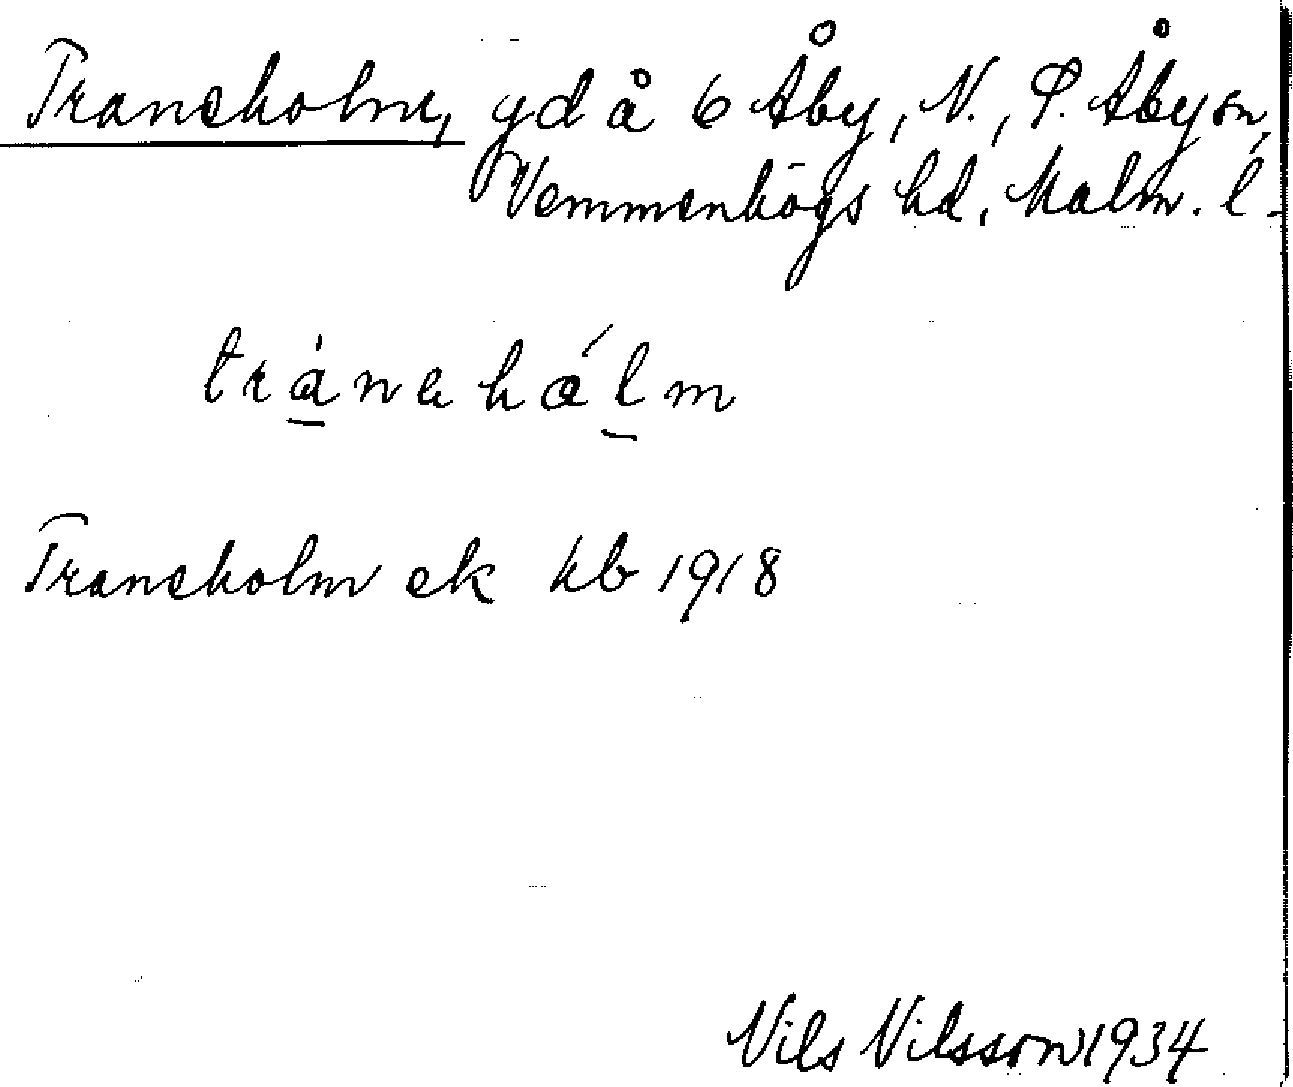 Traneholm, gd å 6 Åby, N., Ö. Åby sn,
Vemmenhögs hd, Malm. l.
trànahálm
Traneholm ek kb 1918
Nils Nilsson 1934